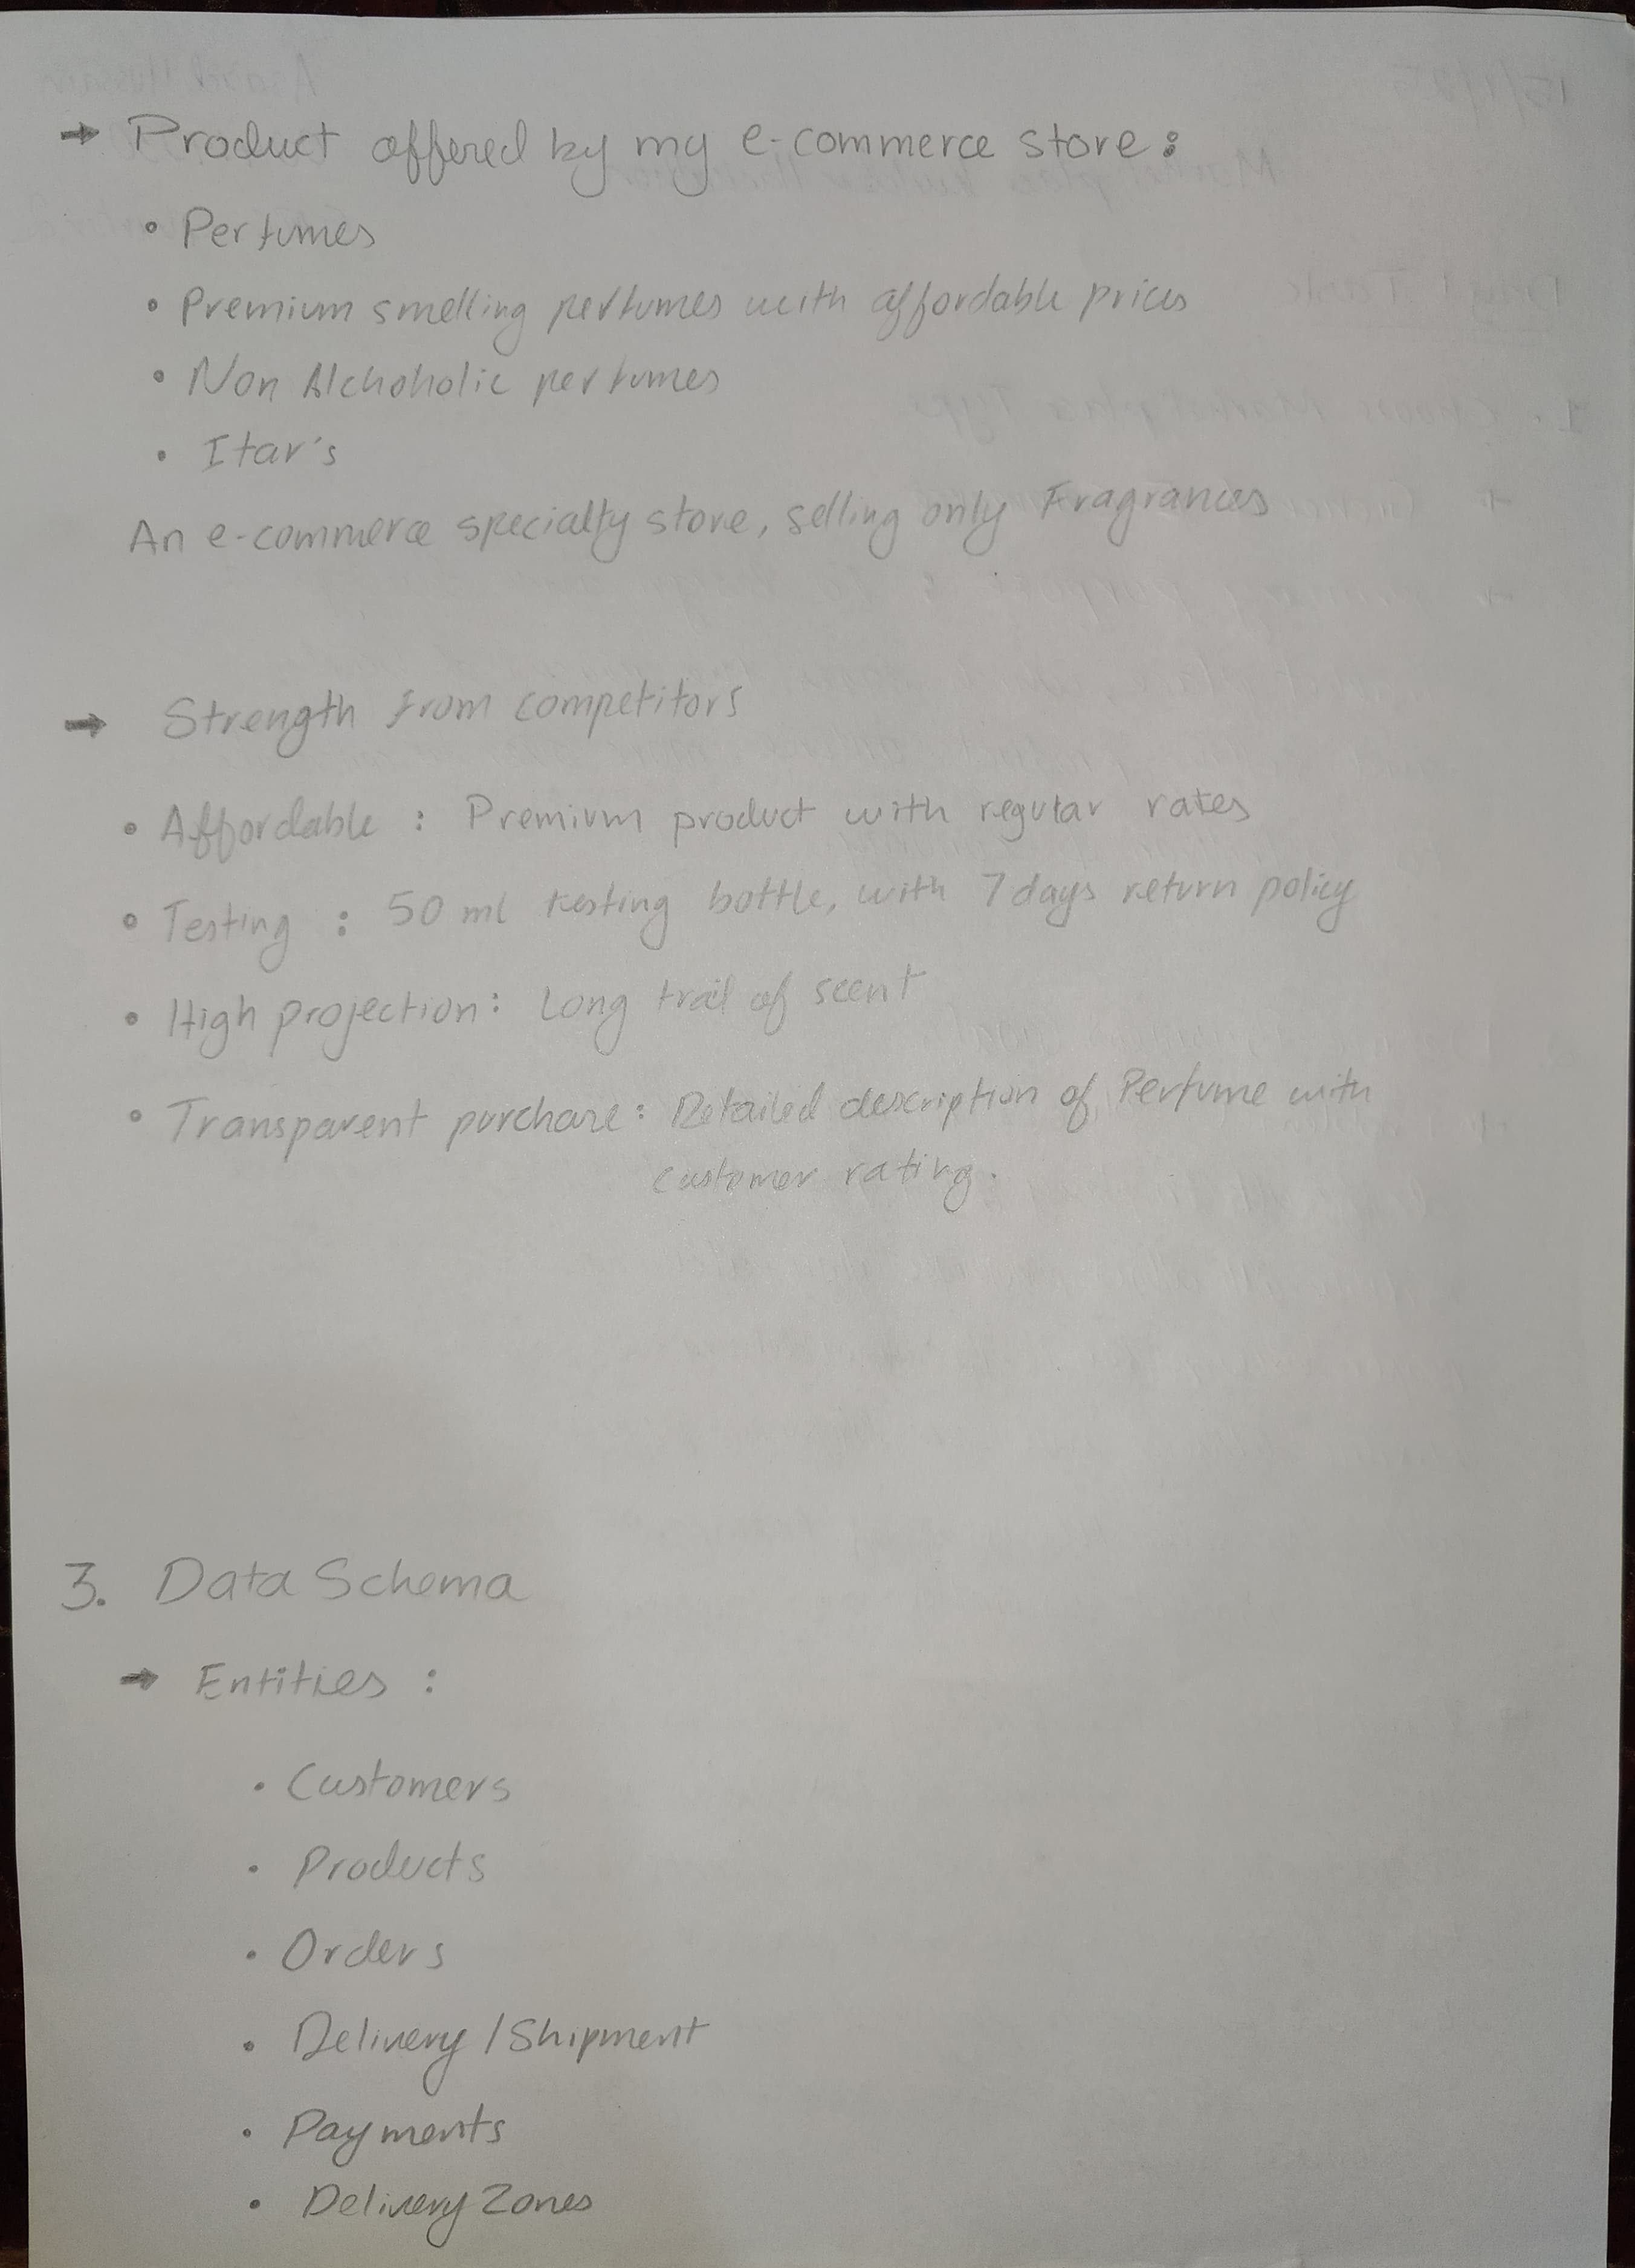 → Product offered by my e-commerce store:
• Perfumes
• Premium smelling perfumes with affordable prices
• Non Alchoholic perfumes
• Itar's
An e-commerce specialty store, selling only Fragrances
→ Strength from competitors
• Affordable : Premium product with regular rates
• Testing : 50 ml testing bottle, with 7 days return policy
• High projection: Long trail of scent
• Transparent purchase: Detailed description of Perfume with
customer rating.
3. Data Schema
→ Entities :
• Customers
• Products
• Orders
• Delivery / Shipment
• Payments
• Delivery Zones